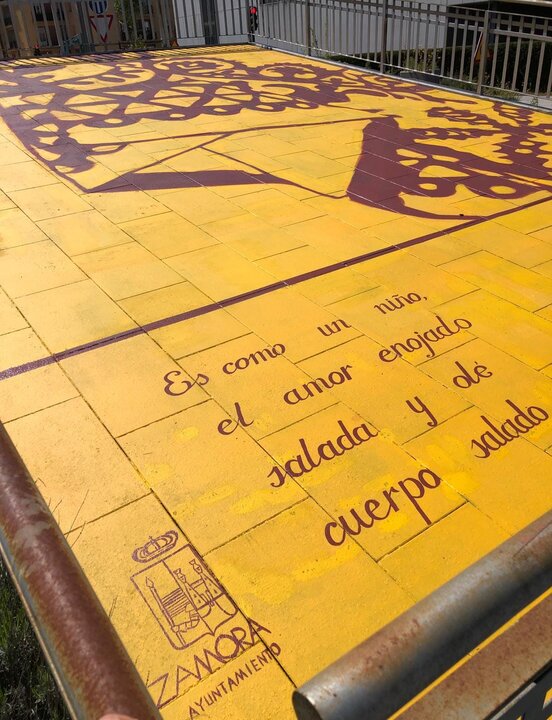 Es como un niño,
el amor enojado
salada y olé
cuerpo salado
ZAMORA
AYUNTAMIENTO